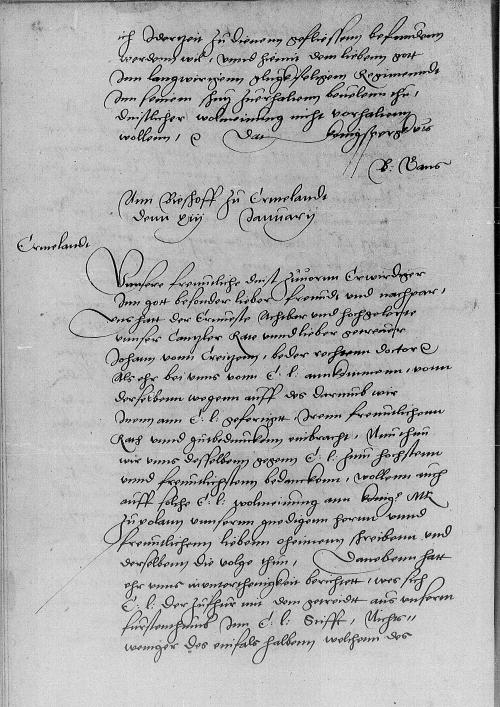 ich Iderzeit zu dienenn geflissenn befundenn
werdenn wil, vnnd hiemit dem liebenn gott
Inn langwirigem gluckseligem Regimenndt
Inn seinem schutz zuerhaltenn beuelenn thu,
dinstlicher wolmeinung nicht vorhaltenn
wollenn, Dat Konigsperg vts
B. Vans
Ann Bischoff zu Ermelandt
denn xiij Januarij
Ermelandt
Vnnsere freuntliche dinst zuuornn Erwirdiger
Inn gott besonder lieber freundt vnd nachpar,
vns hatt der Erneueste Achtbar vnd hochgelerte
vnnser Cantzler Rate vnnd lieber getreuer
Johann vonn Creitzenn, beder rechtenn doctor
Als ehr bei vnns vonn E: l: annkommenn, vonn
derselbenn wegenn auff des darumb wir
Inen ann E: l: gefertigtt Irenn freuntlichenn
Rath vnnd gutbedunckenn einbracht, Nun thun
wir vnns desselbenn gegenn E: l: zum hochstenn
vnnd freuntlichstenn bedanckenn, wollenn auch
auff solche E: l: wolmeinung ann konig: Mt
zu polann vnnserm gnedigenn herrnn vnnd
freuntlichenn liebenn oheimenn schreibenn vnd
derselbenn die volge thun, Danebenn hatt
ehr vnns inn vnterthenigkeit berichtett, wes sich
E: l: der zufhur mit dem getreidt aus vnserm
furstenthumb Inn E: l: Stifft, Nichts
weniger des einfals halbenn welchenn des